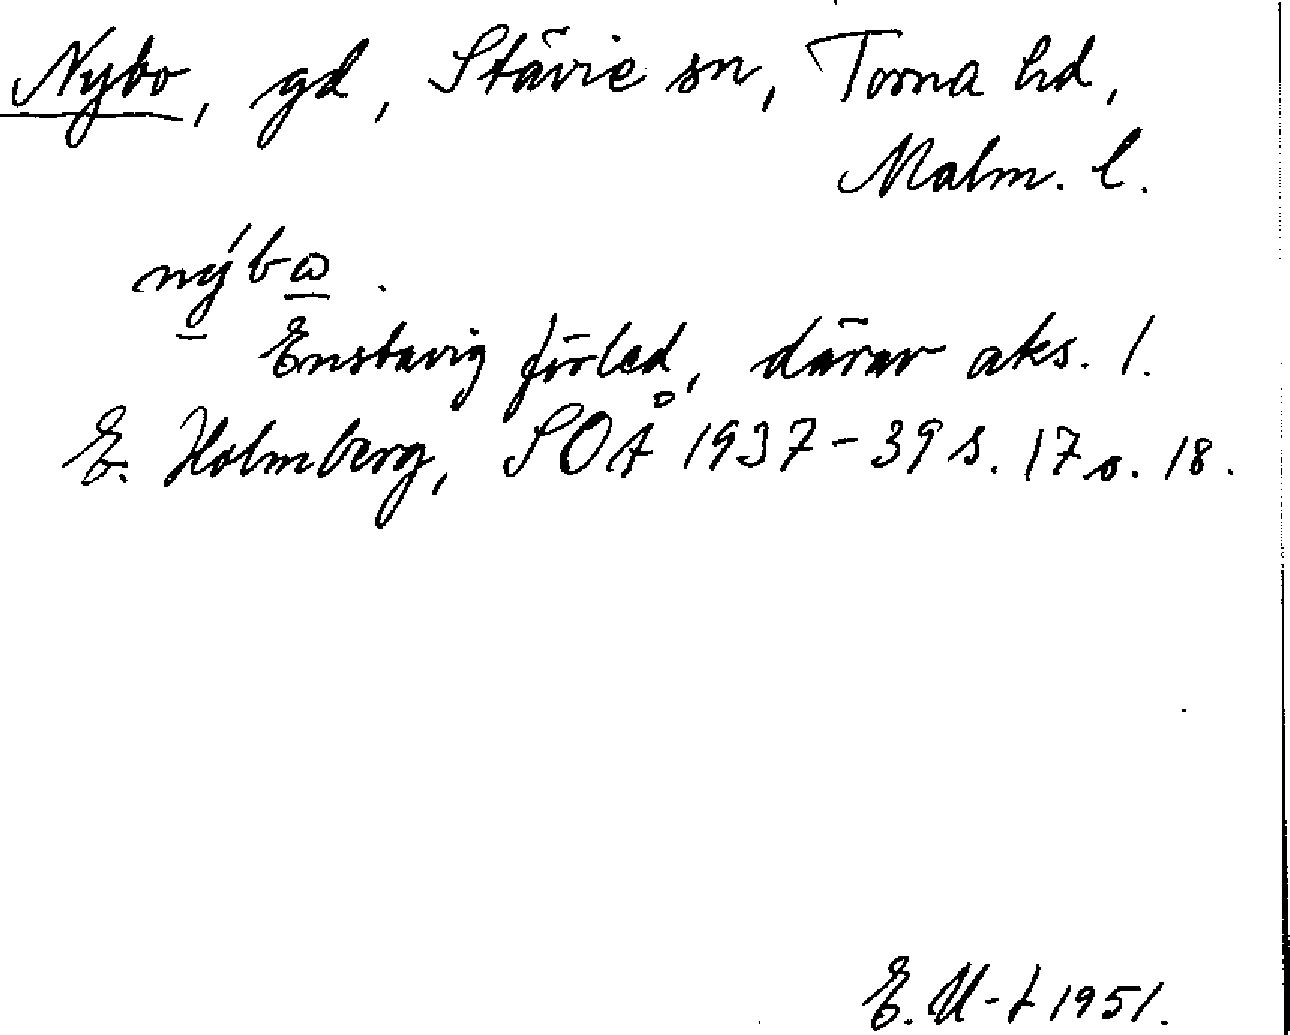 Nybo, gd, Stävie sn, Torna hd,
Malm. l.
nýbω.
Enstavig förled, därav aks. 1.
E. Holmberg, SOÅ 1937-39 s. 17 o. 18.
E. U-t 1951.